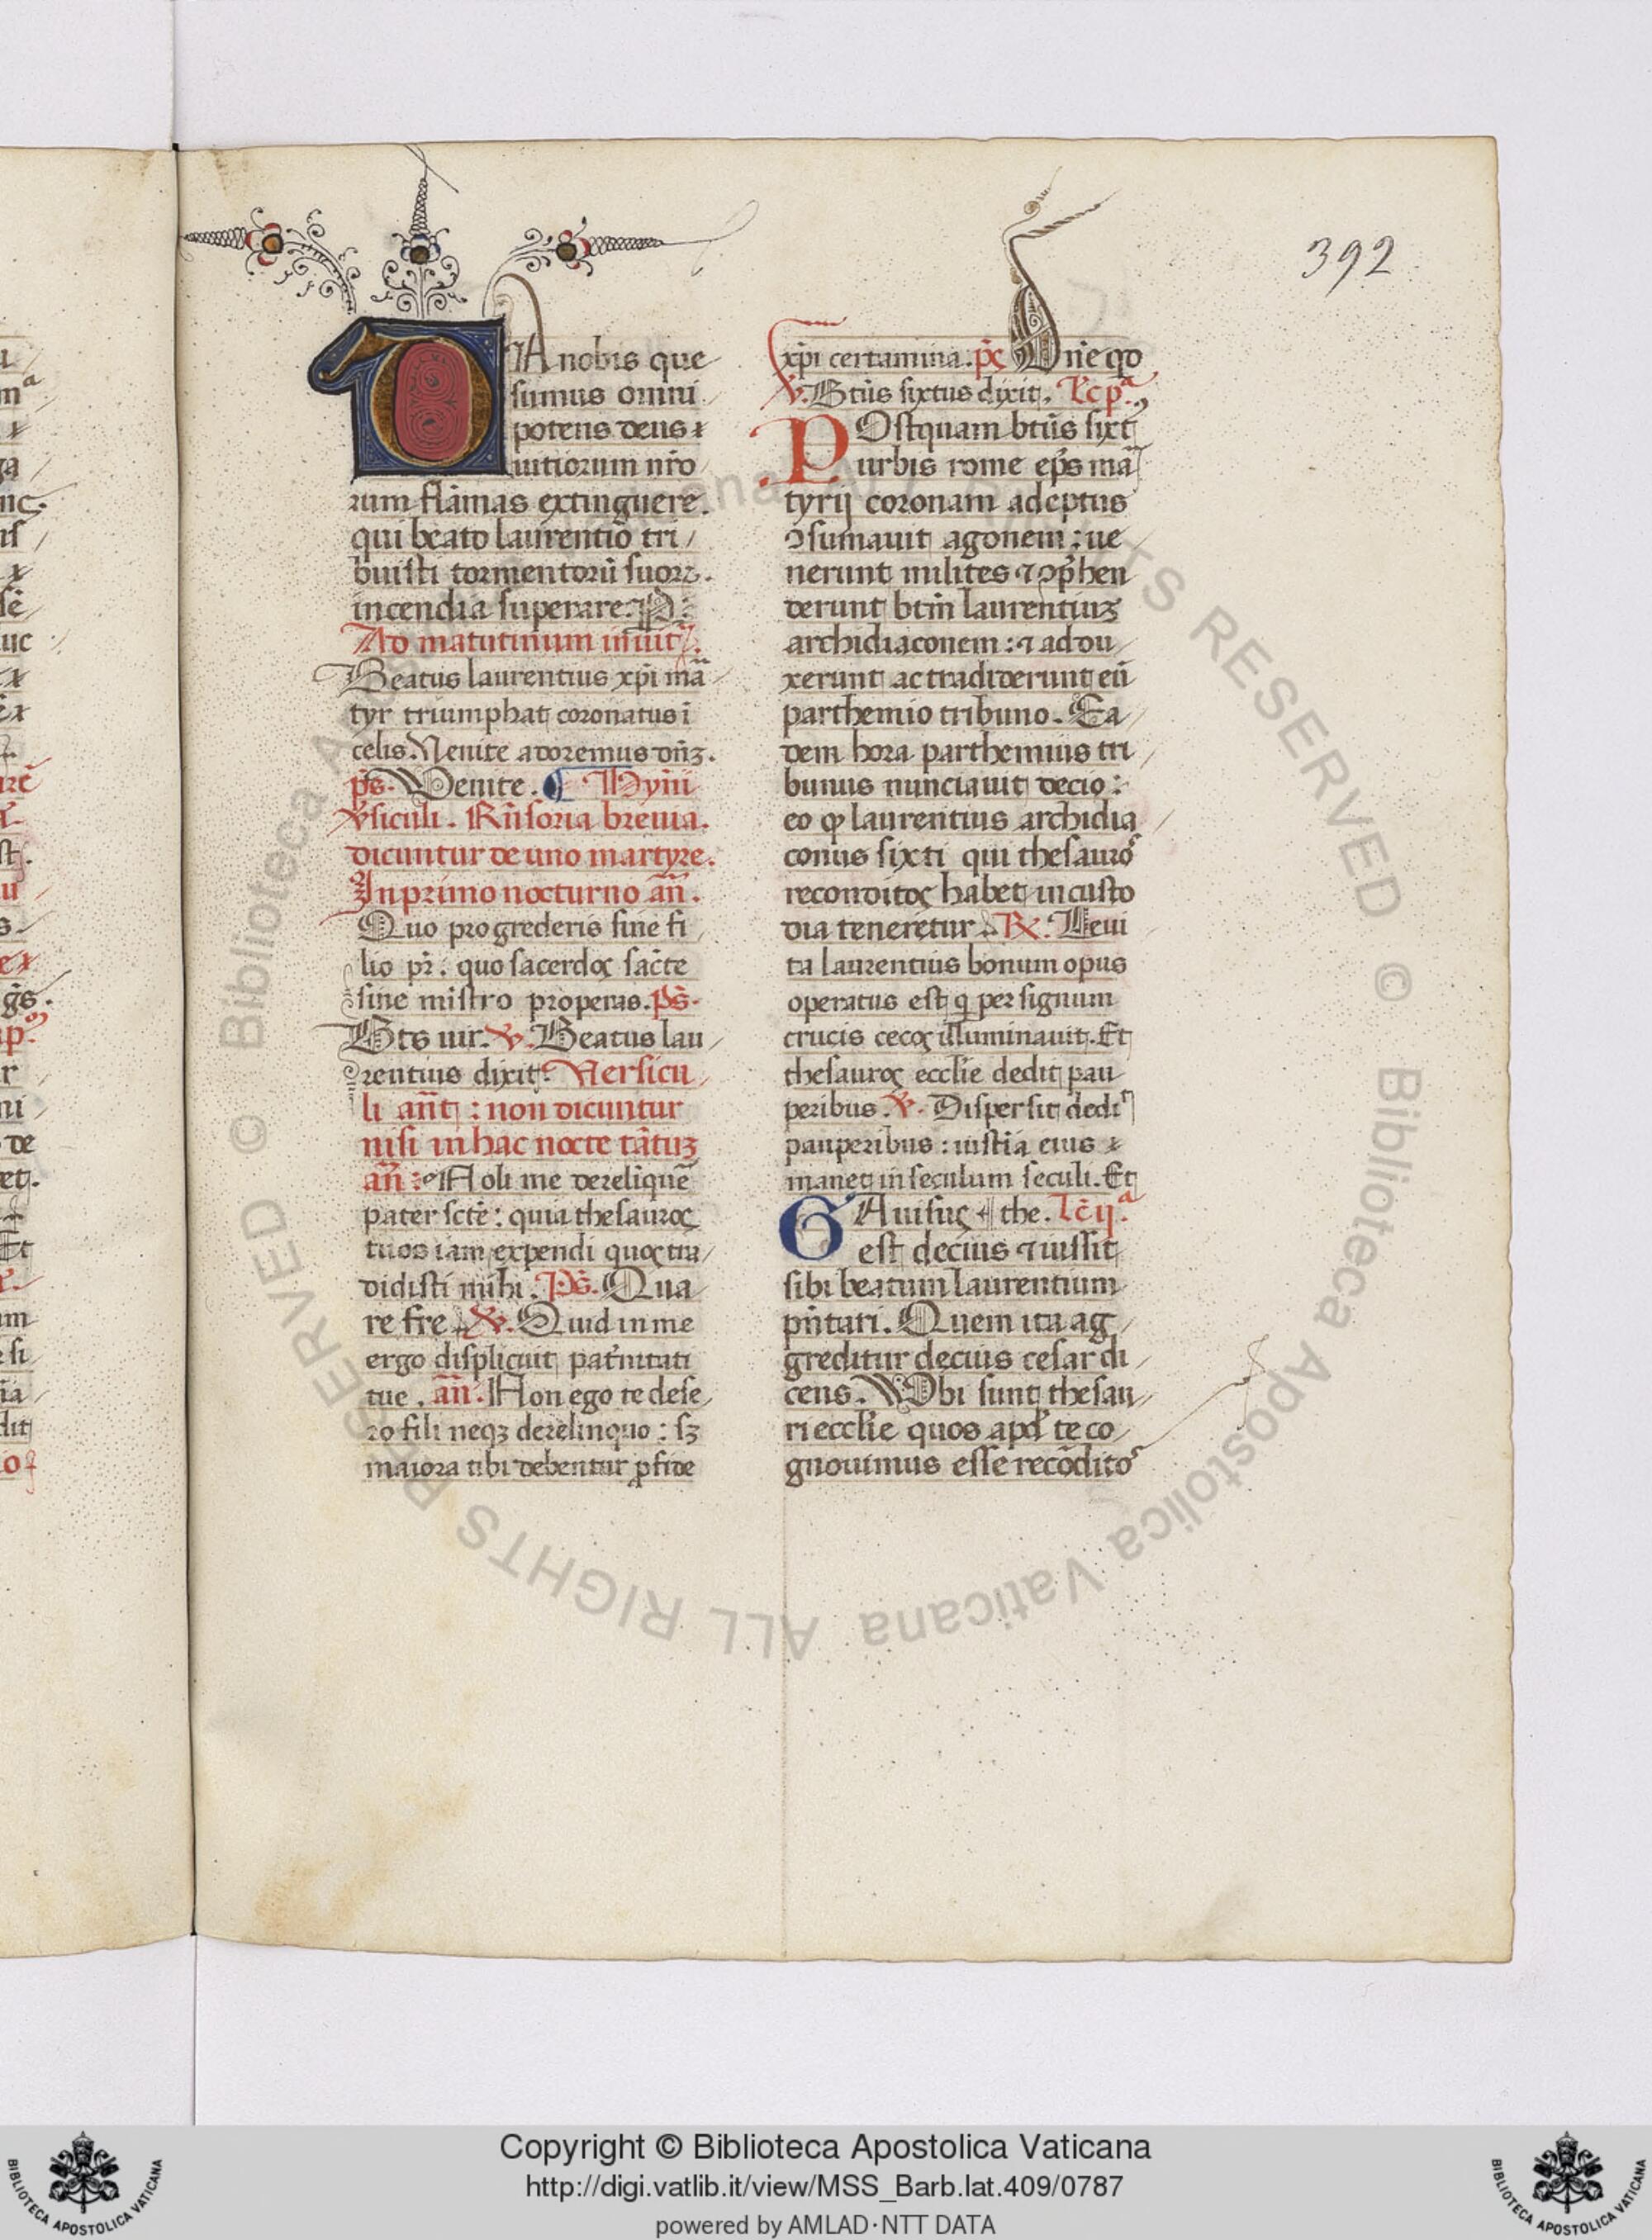 392
DA nobis que
sumus omni
potens deus
uitiorum nr̄o
rum flāmas extinguere.
qui beato laurentio tri
buisti tormentorū suorꝝ.
incendia superare. P.
Ad matutinum inuit.
Beatus laurentius xp̄i mā
tyr triumphat coronatus ī
celis. Venite adoremus dn̄ꝫ.
ps̄. Venite. Hym̄i
v̄siculi. Rn̄soria breuia.
dicuntur de uno martyre.
In primo nocturno an̄.
Quo progrederis sine fi
lio pr̄. quo sacerdos sācte
sine mistro properas. ps̄.
Bt̄s uir. ℣. Beatus lau
rentius dixit. Versicu
li an̄t: non dicuntur
nisi in hac nocte tātuꝫ
an̄: Noli me derelinquē
pater sctē: quia thesauros
tuos iam expendi quos tra
didisti mihi. Ps̄. Qua
re fre ℣. Quid in me
ergo displicuit pat̄nitati
tue. an̄. Non ego te dese
ro fili neqꝫ derelinquo: sꝫ
maiora tibi debentur ꝓ fide
xp̄i certamina. ps̄ Dn̄e qͦ
℣. Bt̄us sixtus dixit. Lc̄ pᵃ.
POstquam bt̄us sixt
urbis rome ep̄s mā
tyrij coronam adeptus
ꝯsumauit agonem: ue
nerunt milites ⁊ ꝯp̄hen
derunt btm̄ laurentiuꝫ
archidiaconem: ⁊ addu
xerunt ac tradiderunt eū
parthemio tribuno. Ea
dem hora parthemius tri
bunus nunciauit decio:
eo ꝙ laurentius archidia
conus sixti qui thesauros
reconditos habet in custo
dia teneretur. ℟. Leui
ta laurentius bonum opus
operatus est q̄ per signum
crucis cecos illuminauit. Et
thesauros eccl̄ie dedit pau
peribus. ℣. Dispersit dedit
pauperibus: iustīa eius
manet in seculum seculi. Et
GAuisus the. Lc̄ ijᵃ.
est decius ⁊ iussit
sibi beatum laurentium
pn̄tari. Quem ita ag
greditur decius cesar di
cens. Vbi sunt thesau
ri eccl̄ie quos apd̄ te co
gnouimus esse recōditos
© Biblioteca Apostolica Vaticana ALL RIGHTS RESERVED © Biblioteca Apostolica Vaticana ALL RIGHTS RESERVED
Copyright © Biblioteca Apostolica Vaticana
http://digi.vatlib.it/view/MSS_Barb.lat.409/0787
powered by AMLAD·NTT DATA
BIBLIOTECA APOSTOLICA VATICANA
BIBLIOTECA APOSTOLICA VATICANA